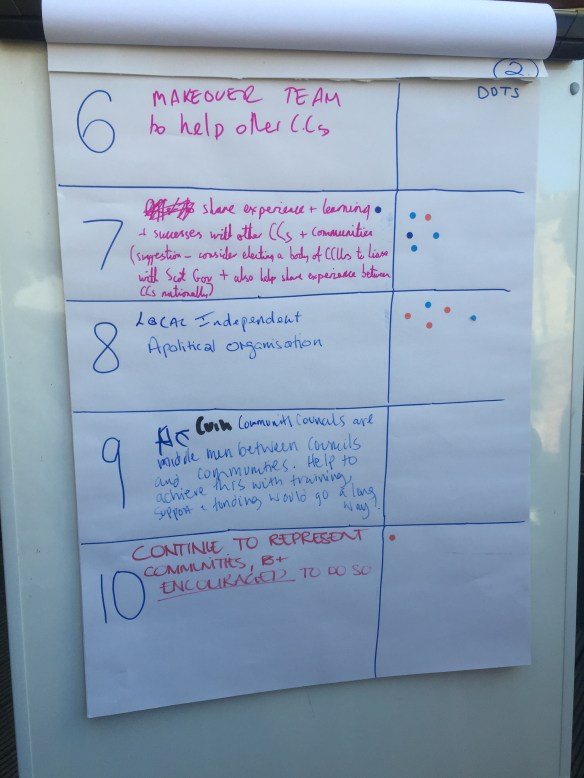 2
DOTS
6
MAKEOVER TEAM
to help other C.Cs
7
share experience + learning
+ successes with other CCs + communities
(suggestion - consider electing a body of CCllrs to liaise
with Scot Gov + also help share experience between
CCs nationally)
8
LOCAL Independent
Apolitical organisation
9
Community Councils are
middle men between Councils
and communities. Help to
achieve this with training,
support + funding would go a long
way.
10
CONTINUE TO REPRESENT
COMMUNITIES, B+
ENCOURAGED TO DO SO